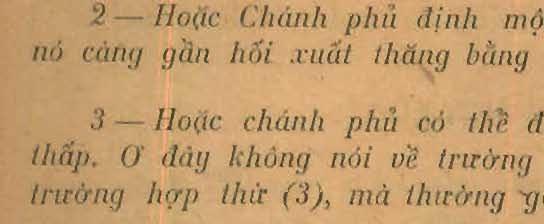 2 — Hoặc Chánh phủ định
nó càng gần hối xuất thăng bằng
3 — Hoặc chánh phủ có thể
thấp. Ơ đây không nói về trường
trường hợp thứ (3), mà thường